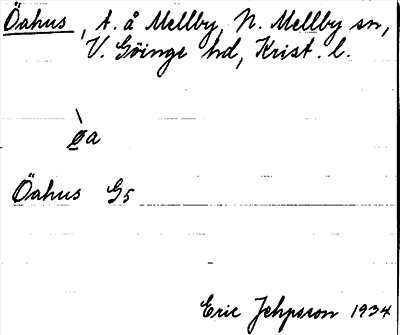 Öahus, t. å Mellby, N. Mellby sn,
V. Göinge hd, Krist. l.
øa
Öahus G5
Eric Jehpsson 1934